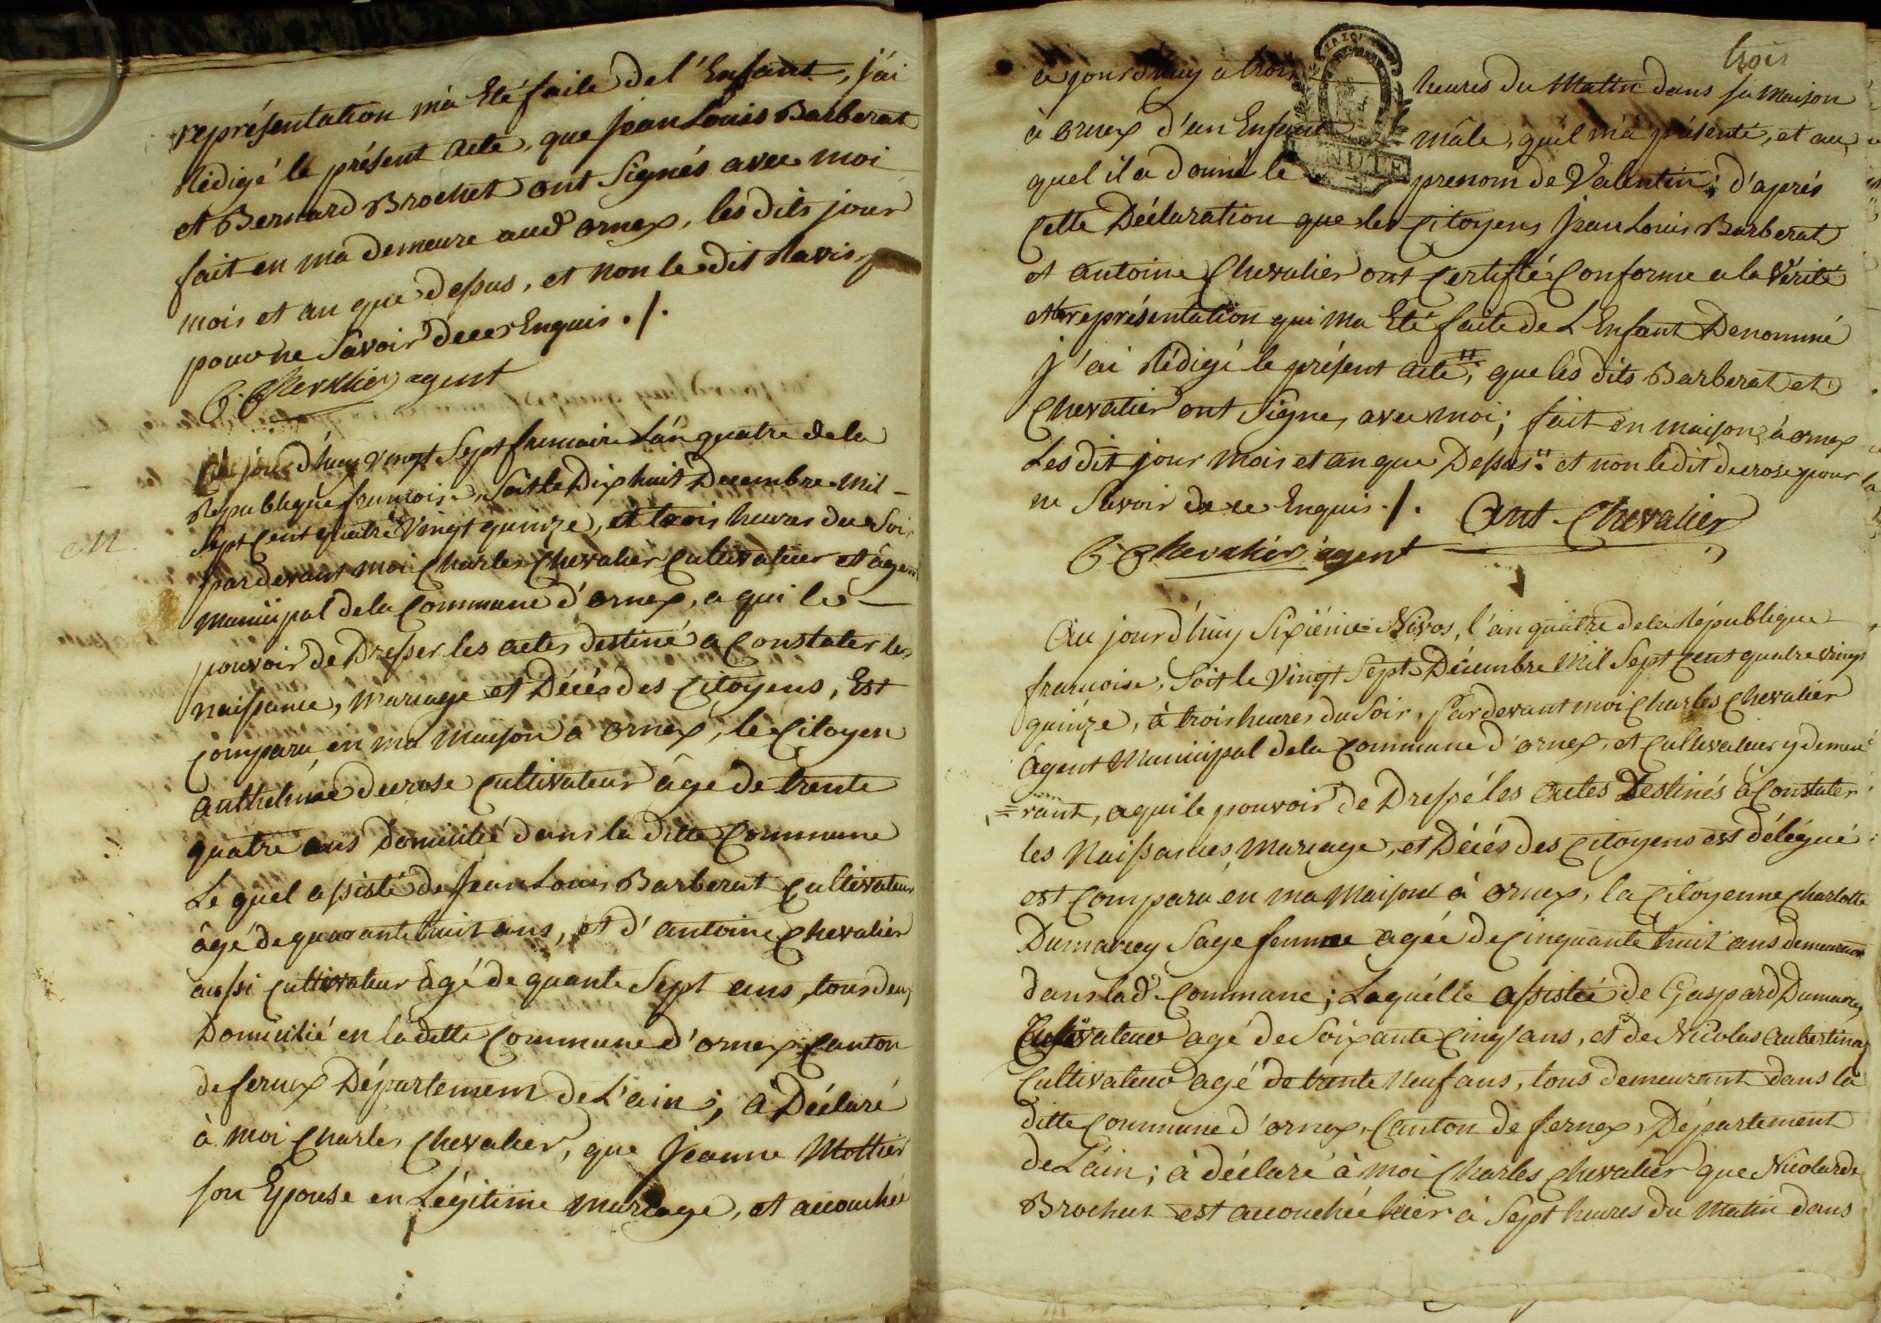 représentation m'a Eté faite de l'Enfant, j'ai
Rédigé le présent acte, que jean Louis Barberat
et Bernard Brochet ont Signés avec moi
fait en ma demeure aud ornex, les dits jour
mois et an que dessus, et non le dit
pour ne Savoir de ce Enquis ./.
C. Chevallier agent
Ce jourd'huy vingt Sept frimaire L'an quatre de la
Republique francoise, Soit le Dix huit Decembre Mil
Sept Cent quatre Vingt quinze, et trois heures du Soir
pardevant moi Charles Chevalier Cultivateur et âgent
municipal de la Commune d'ornex, a qui le
pouvoir de Dresser les actes destiné a Constater les
naissance, mariage et Décés des Citoyens, Est
comparu en ma maison a ornex, le Citoyen
anthelme decrose cultivateur âge de trente
quatre ans Domicilié dans la ditte Commune
Le quel assisté de Jean Louis Barberat Cultivateur
âgé de quarante huit ans, et d'antoine Chevalier
aussi Cultivateur âgé de quante Sept ans, tous deux
Domicilié en la ditte Commune d'ornex Canton
de fernex Département de L'ain; à Déclaré
à moi Charles Chevalier, que Jeanne Mottier
son Epouse en Légitime mariage, et accouchée
trois
ce jourd'huy a trois heures du Matin dans sa maison
a ornex d'un Enfant mâle, qu'il m'a présenté, et au
quel il a donné le prenom de Valentin; d'aprés
Cette Déclaration que les Citoyens Jean Louis Barberat
et antoine Chevalier ont Certifié Conforme a la Vérité
et la représentation qui ma Eté faite de L'Enfant Denommé
j'ai Rédigé le présent acte, que les dits Barberat et
Chevalier ont Signe, avec moi; fait en maison à ornex
Les dit jour mois et an que Dessus et non le dit decrose pour
ne Savoir de ce Enquis ./. Ant. Chevalier
C. Chevallier agent
Au jourd'huy Sixiéme Nivos, l'an quatre de la République
francoise, Soit le Vingt Sept Décembre Mil Sept Cent quatre vingt
quinze, à trois heures du Soir, pardevant moi Charles Chevalier
Agent Municipal de la Commune d'ornex, et Cultivateur y demeu
=rant, a qui le pouvoir de Dressé les actes Destinés à Constater
les Naissances mariage, et Décés des Citoyens est délégué
est Comparu en ma Maison à ornex, la Citoyenne Charlotte
Dumarcey Sage femme agée de Cinquante huit ans demeurant
dans lad. Commune; Laquélle assistée de Gaspard Dumarcey
Cultivateur agé de Soixante Cinq ans, et de Nicolas
Cultivateur agé de trente neuf ans, tous demeurant dans la
ditte Commune d'ornex, Canton de fernex, Département
de L'ain; à déclaré à moi Charles Chevalier que Nicolarde
Brochet est accouchée hier à Sept heures du Matin dans